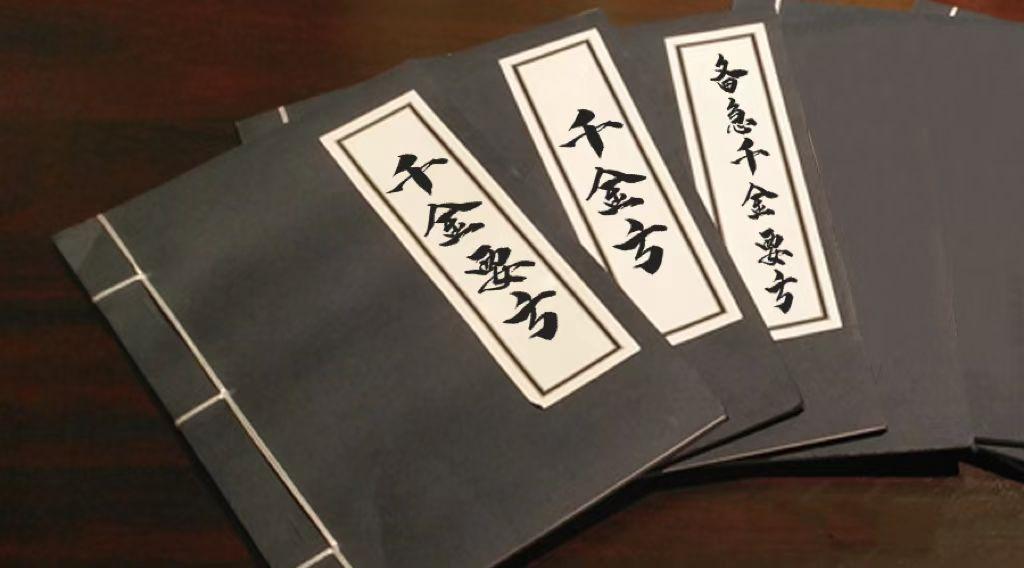 千金要方
千金方
备急千金要方